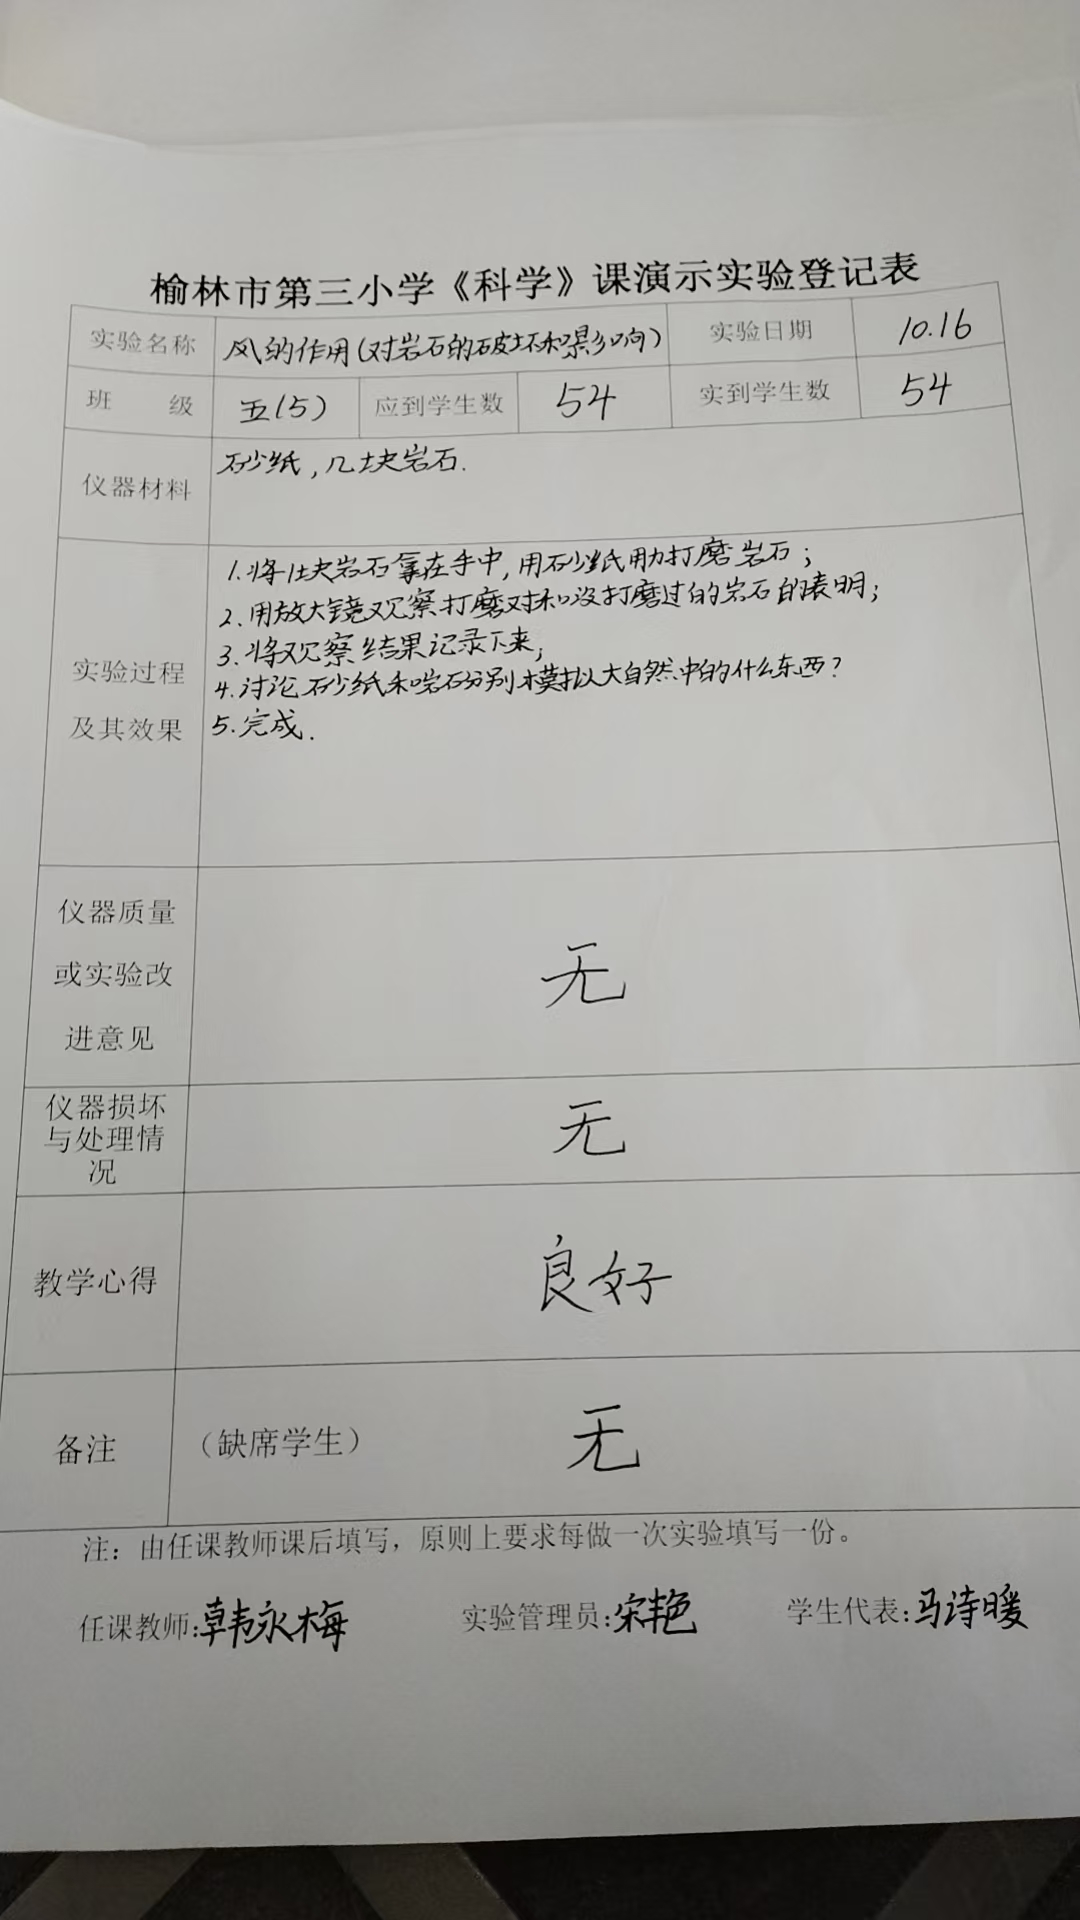 榆林市第三小学《科学》课演示实验登记表
实验名称 风的作用(对岩石的破坏和影响) 实验日期 10.16
班 级 五(5) 应到学生数 54 实到学生数 54
仪器材料 砂纸,几块岩石.
实验过程及其效果
1.将1块岩石拿在手中,用砂纸用力打磨岩石;
2.用放大镜观察打磨对和没打磨过的岩石的表明;
3.将观察结果记录下来;
4.讨论砂纸和岩石分别模拟大自然中的什么东西?
5.完成.
仪器质量
或实验改
进意见
无
仪器损坏
与处理情
况
无
教学心得 良好
备注 (缺席学生) 无
注:由任课教师课后填写,原则上要求每做一次实验填写一份。
任课教师:韩永梅 实验管理员:宋艳 学生代表:马诗暖